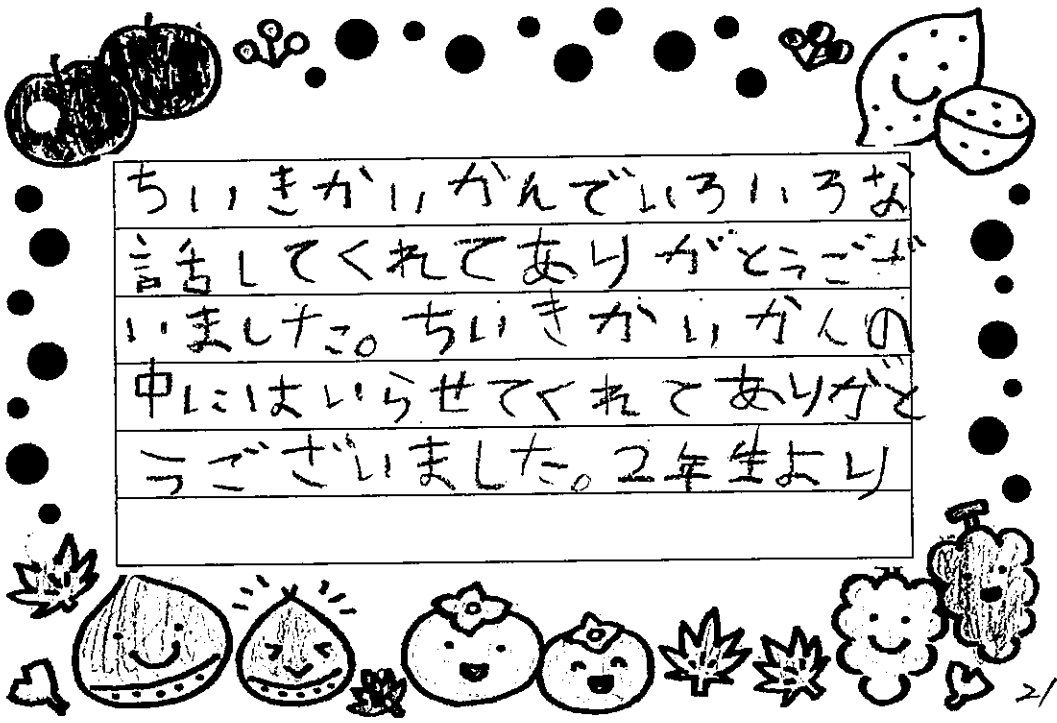 ちいきかいかんでいろいろな
話してくれてありがとうござ
いました。ちいきかいかんの
中にはいらせてくれてありがと
うございました。2年生より
21